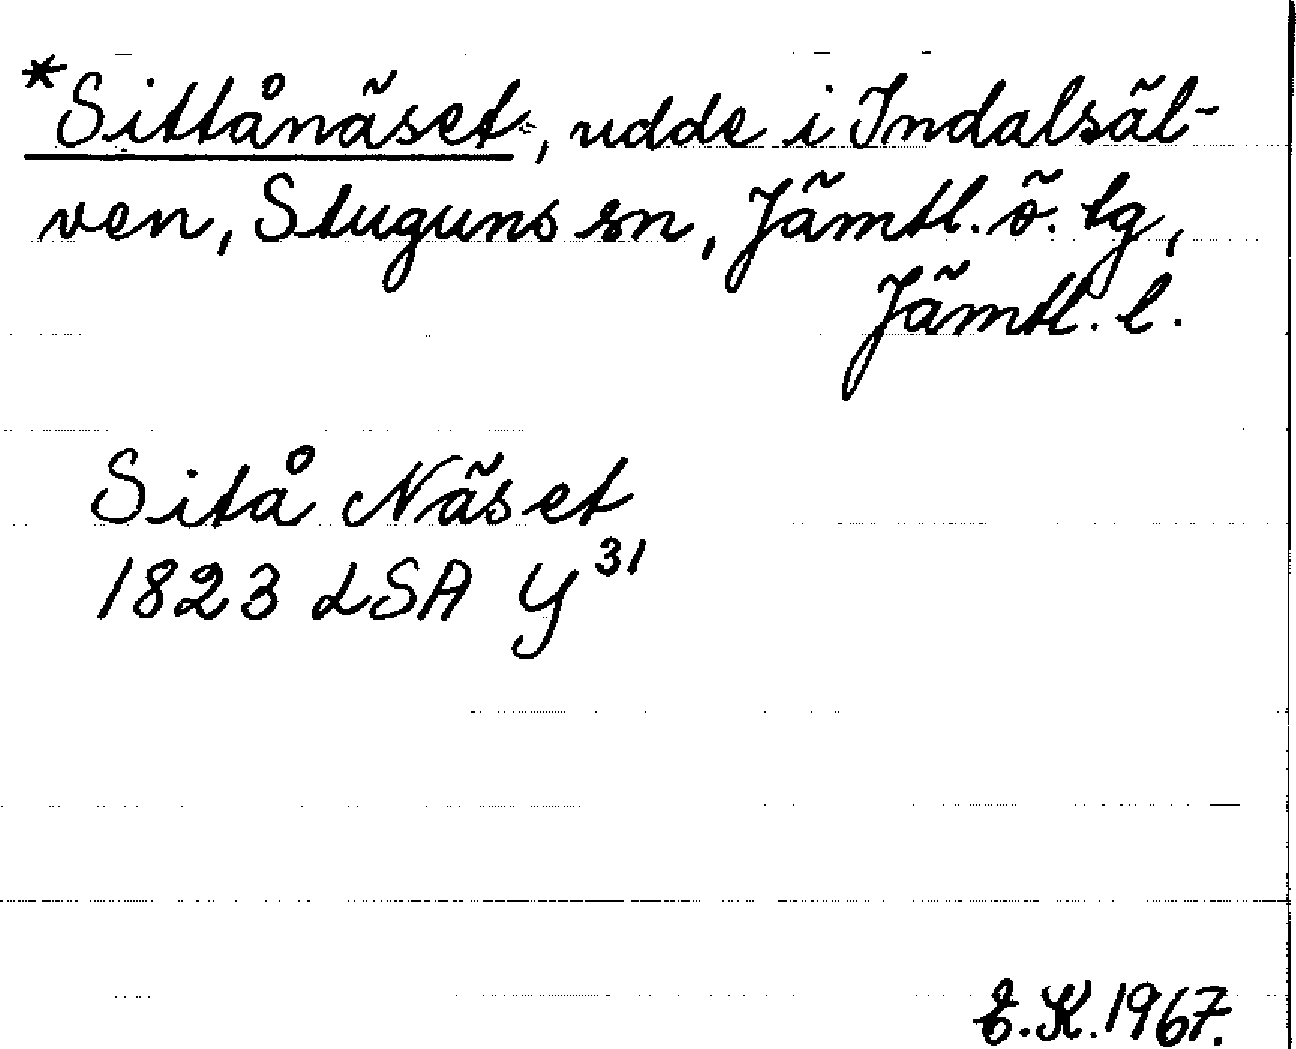 *Sittånäset, udde i Indalsäl-
ven, Stuguns sn, Jämtl. ö. tg,
Jämtl. l.
Sitå Näset
1823 LSA Y 31
E.K. 1967.